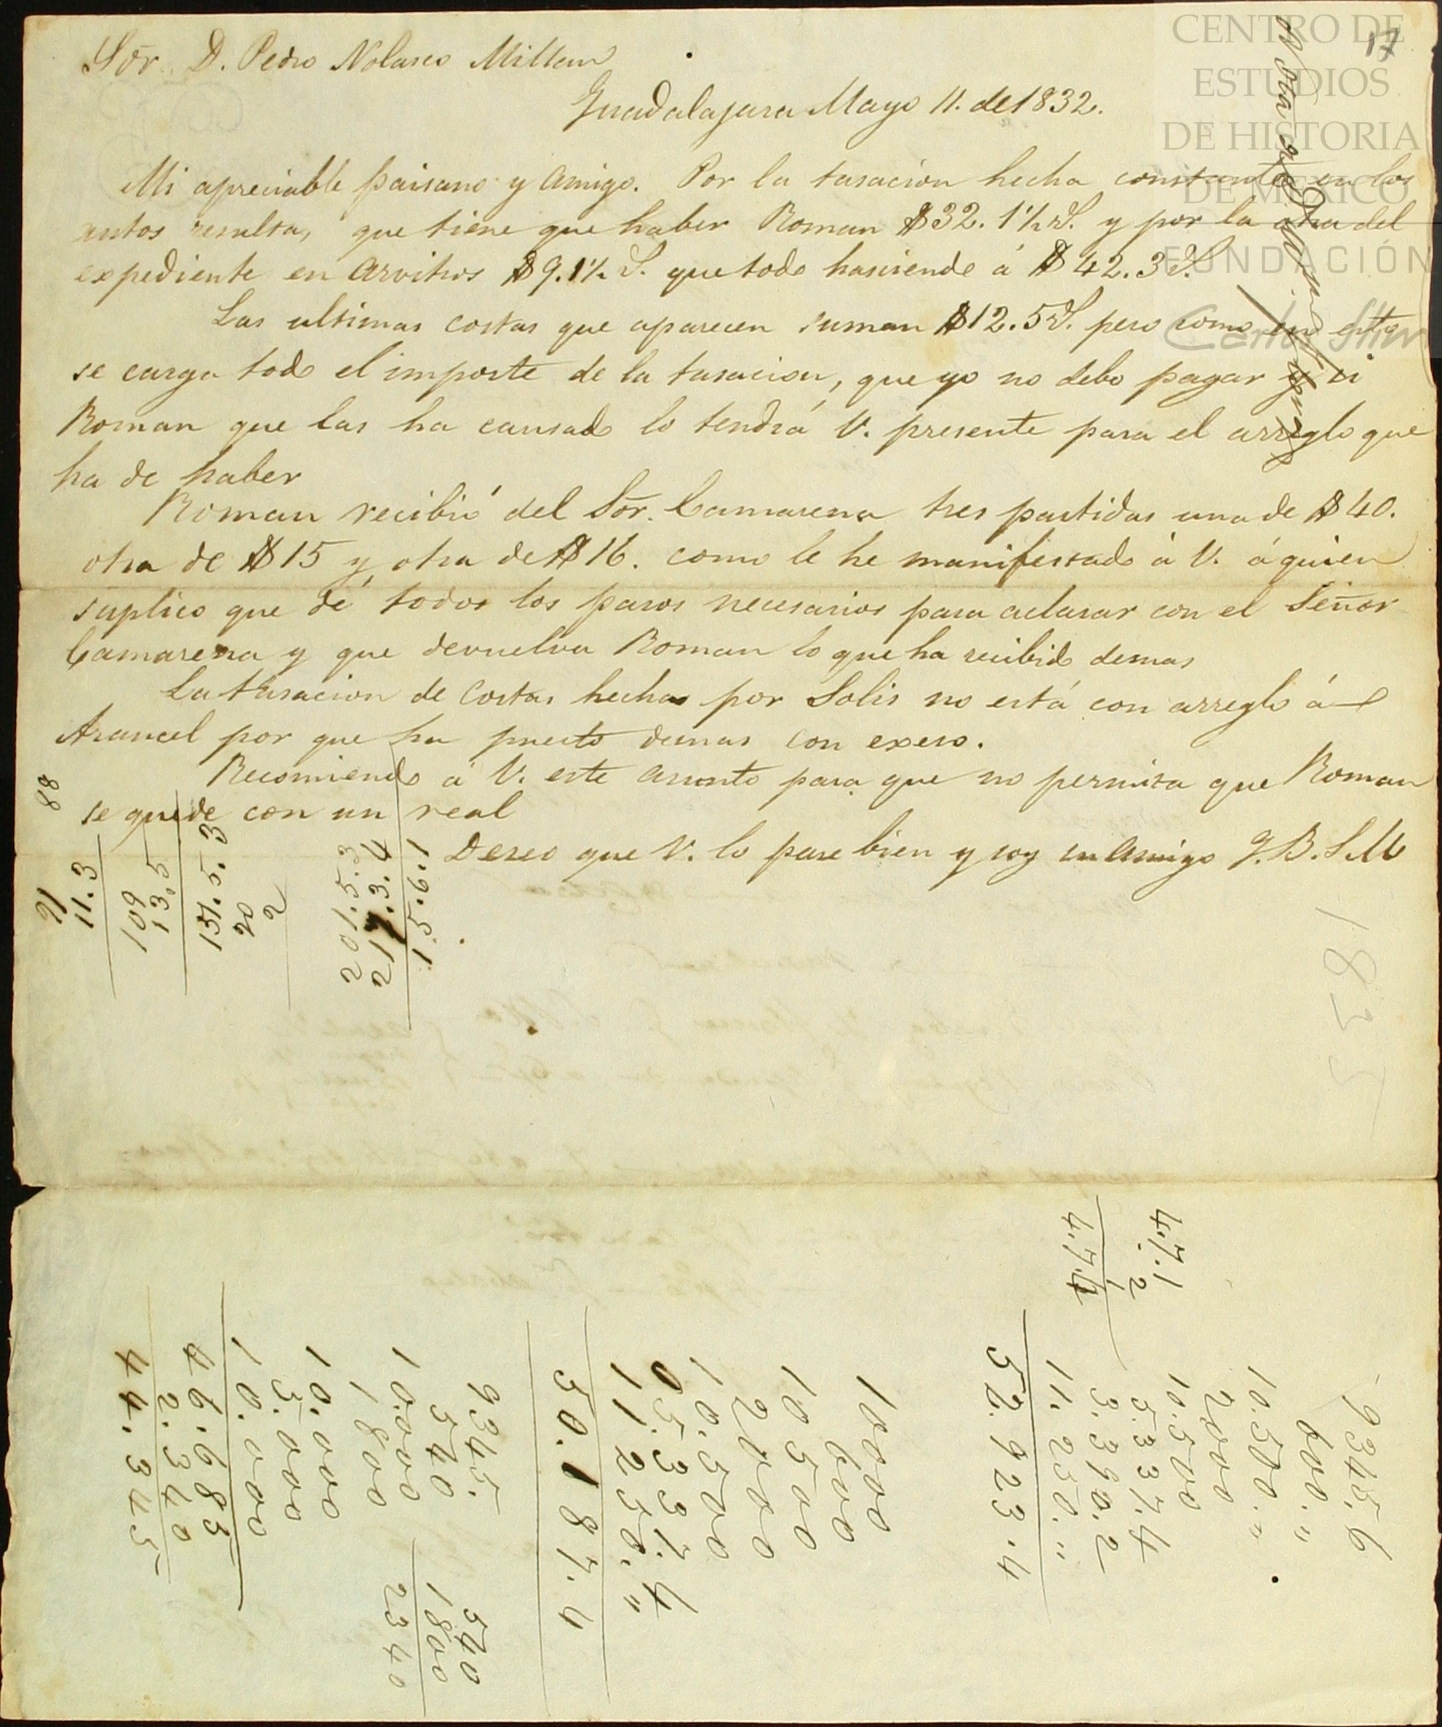 17
CENTRO DE
ESTUDIOS
DE HISTORIA
DE MÉXICO
FUNDACIÓN
Carlos Slim
Sor. D. Pedro Nolasco Millan
Guadalajara Mayo 11. de 1832.
Mi apreciable paisano y amigo. Por la tasacion hecha constante en los
autos resulta, que tiene que haber Roman $32. 1½ r.s y por la otra del
expediente en arvitros $9.1½ r.s que todo hasciende á $42.3 r.s
Las ultimas costas que aparecen suman $12.5 r.s pero como en esta
se carga todo el importe de la tasacion, que yo no debo pagar y si
Roman que las ha causado lo tendrá V. presente para el arreglo que
ha de haber
Roman recibió del Sor. Camarena tres partidas una de $40.
otra de $15 y otra de $16. como le he manifestado á V. á quien
suplico que dé todos los pasos necesarios para aclarar con el Señor
Camarena y que devuelva Roman lo que ha recibido demas
La tasacion de costas hecha por Solis no está con arreglo á
Arancel por que ha puesto demas con exeso.
Recomiendo á V. este asunto para que no permita que Roman
se quede con un real
Deseo que V. lo pase bien y soy su amigo q.B.S.M
88
21
11.3
109
13.5
151.5.3
20
2
201.5.3
217.3.4
15.6.1
1835
4.7.1
2
4.7.4
9345.6
600.〃
10.500.〃
2000
10.500
5.337.4
3.390.2
11.250.〃
52.923.4
10000
600
10500
2000
10.500
05.337.4
11.250.〃
50.187.4
9345.
540
10.000
1800
10.000
5.000
10.000
46.685
2.340
44.345
540
1800
2340